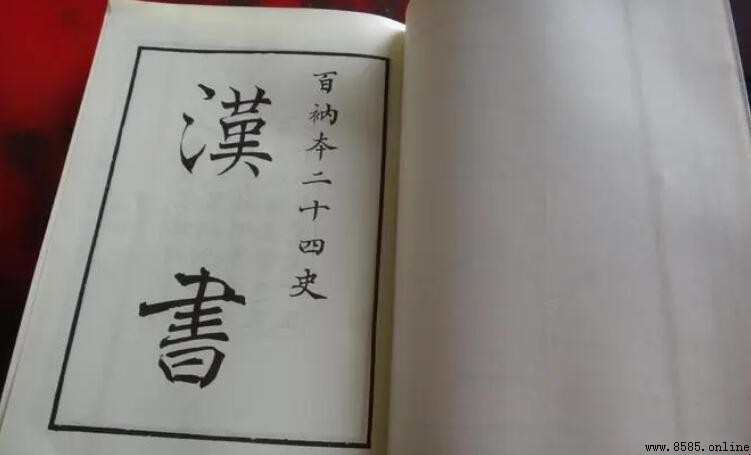 百衲本二十四史
漢書
www.8585.online